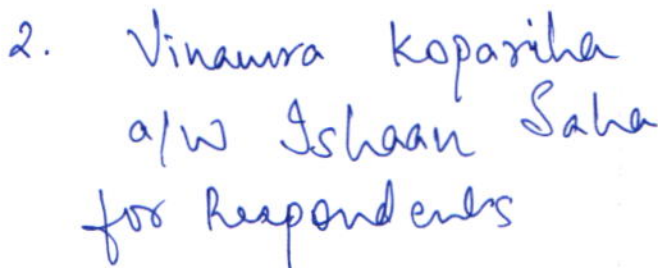 2. Vinamra Kopariha
a/w Ishaan Saha
for Respondents